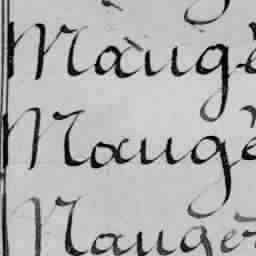 Maugè
Maugè
Mauger